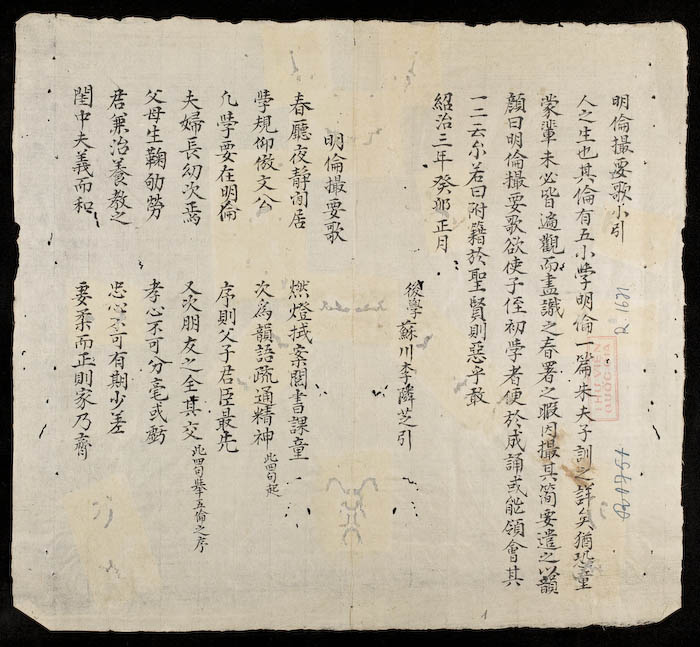 明倫撮要歌小引
人之生也其倫有五小學明倫一篇朱夫子訓之詳矣猶恐童
蒙輩未必皆遍觀而盡識之春署之暇因撮其簡要遣之以韻
顏曰明倫撮要歌欲使子侄初學者便於成誦或能領會其
一二云尓若曰附籍於聖賢則惡乎敢
紹治三年癸卯正月
後學蘇川李隣芝引
明倫撮要歌
春廳夜靜閒居 燃燈拭案閱書課童
學規仰倣文公 次為韻語疏通精神 此四句起
凢學要在明倫 序則父子君臣最先
夫婦長幼次焉 又次朋友之全其交 此四句舉五倫之序
父母生鞠劬勞 孝心不可分毫或虧
君兼治養教之 忠心不可有期少差
閨中夫義而和 妻柔而正則家乃齊
R.1621
THƯ VIỆN
QUỐC GIA
1